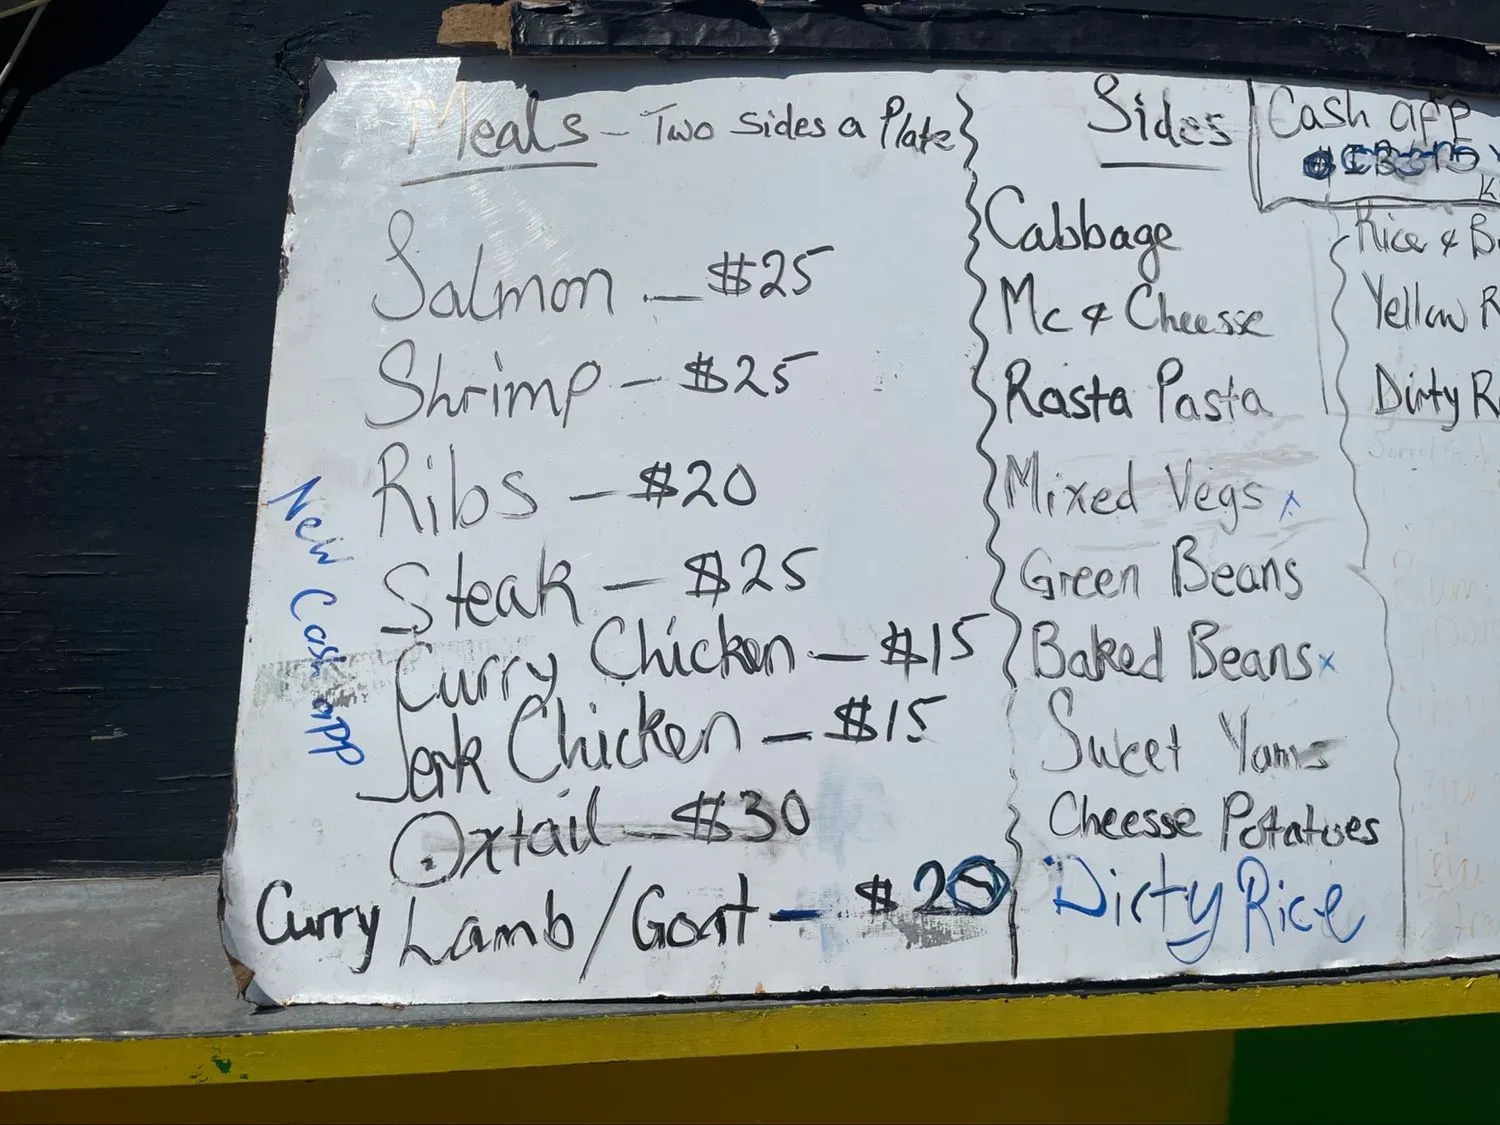 Meals - Two Sides a Plate
Salmon - $25
Shrimp - $25
Ribs - $20
Steak - $25
Curry Chicken - $15
Jerk Chicken - $15
Oxtail - $30
Curry Lamb/Goat - $20
New Cash app
Sides
Cabbage
Mc & Cheesse
Rasta Pasta
Mixed Vegs x
Green Beans
Baked Beans x
Sweet Yams
Cheesse Potatoes
Dirty Rice
Cash app
Rice & B
Yellow R
Dirty R